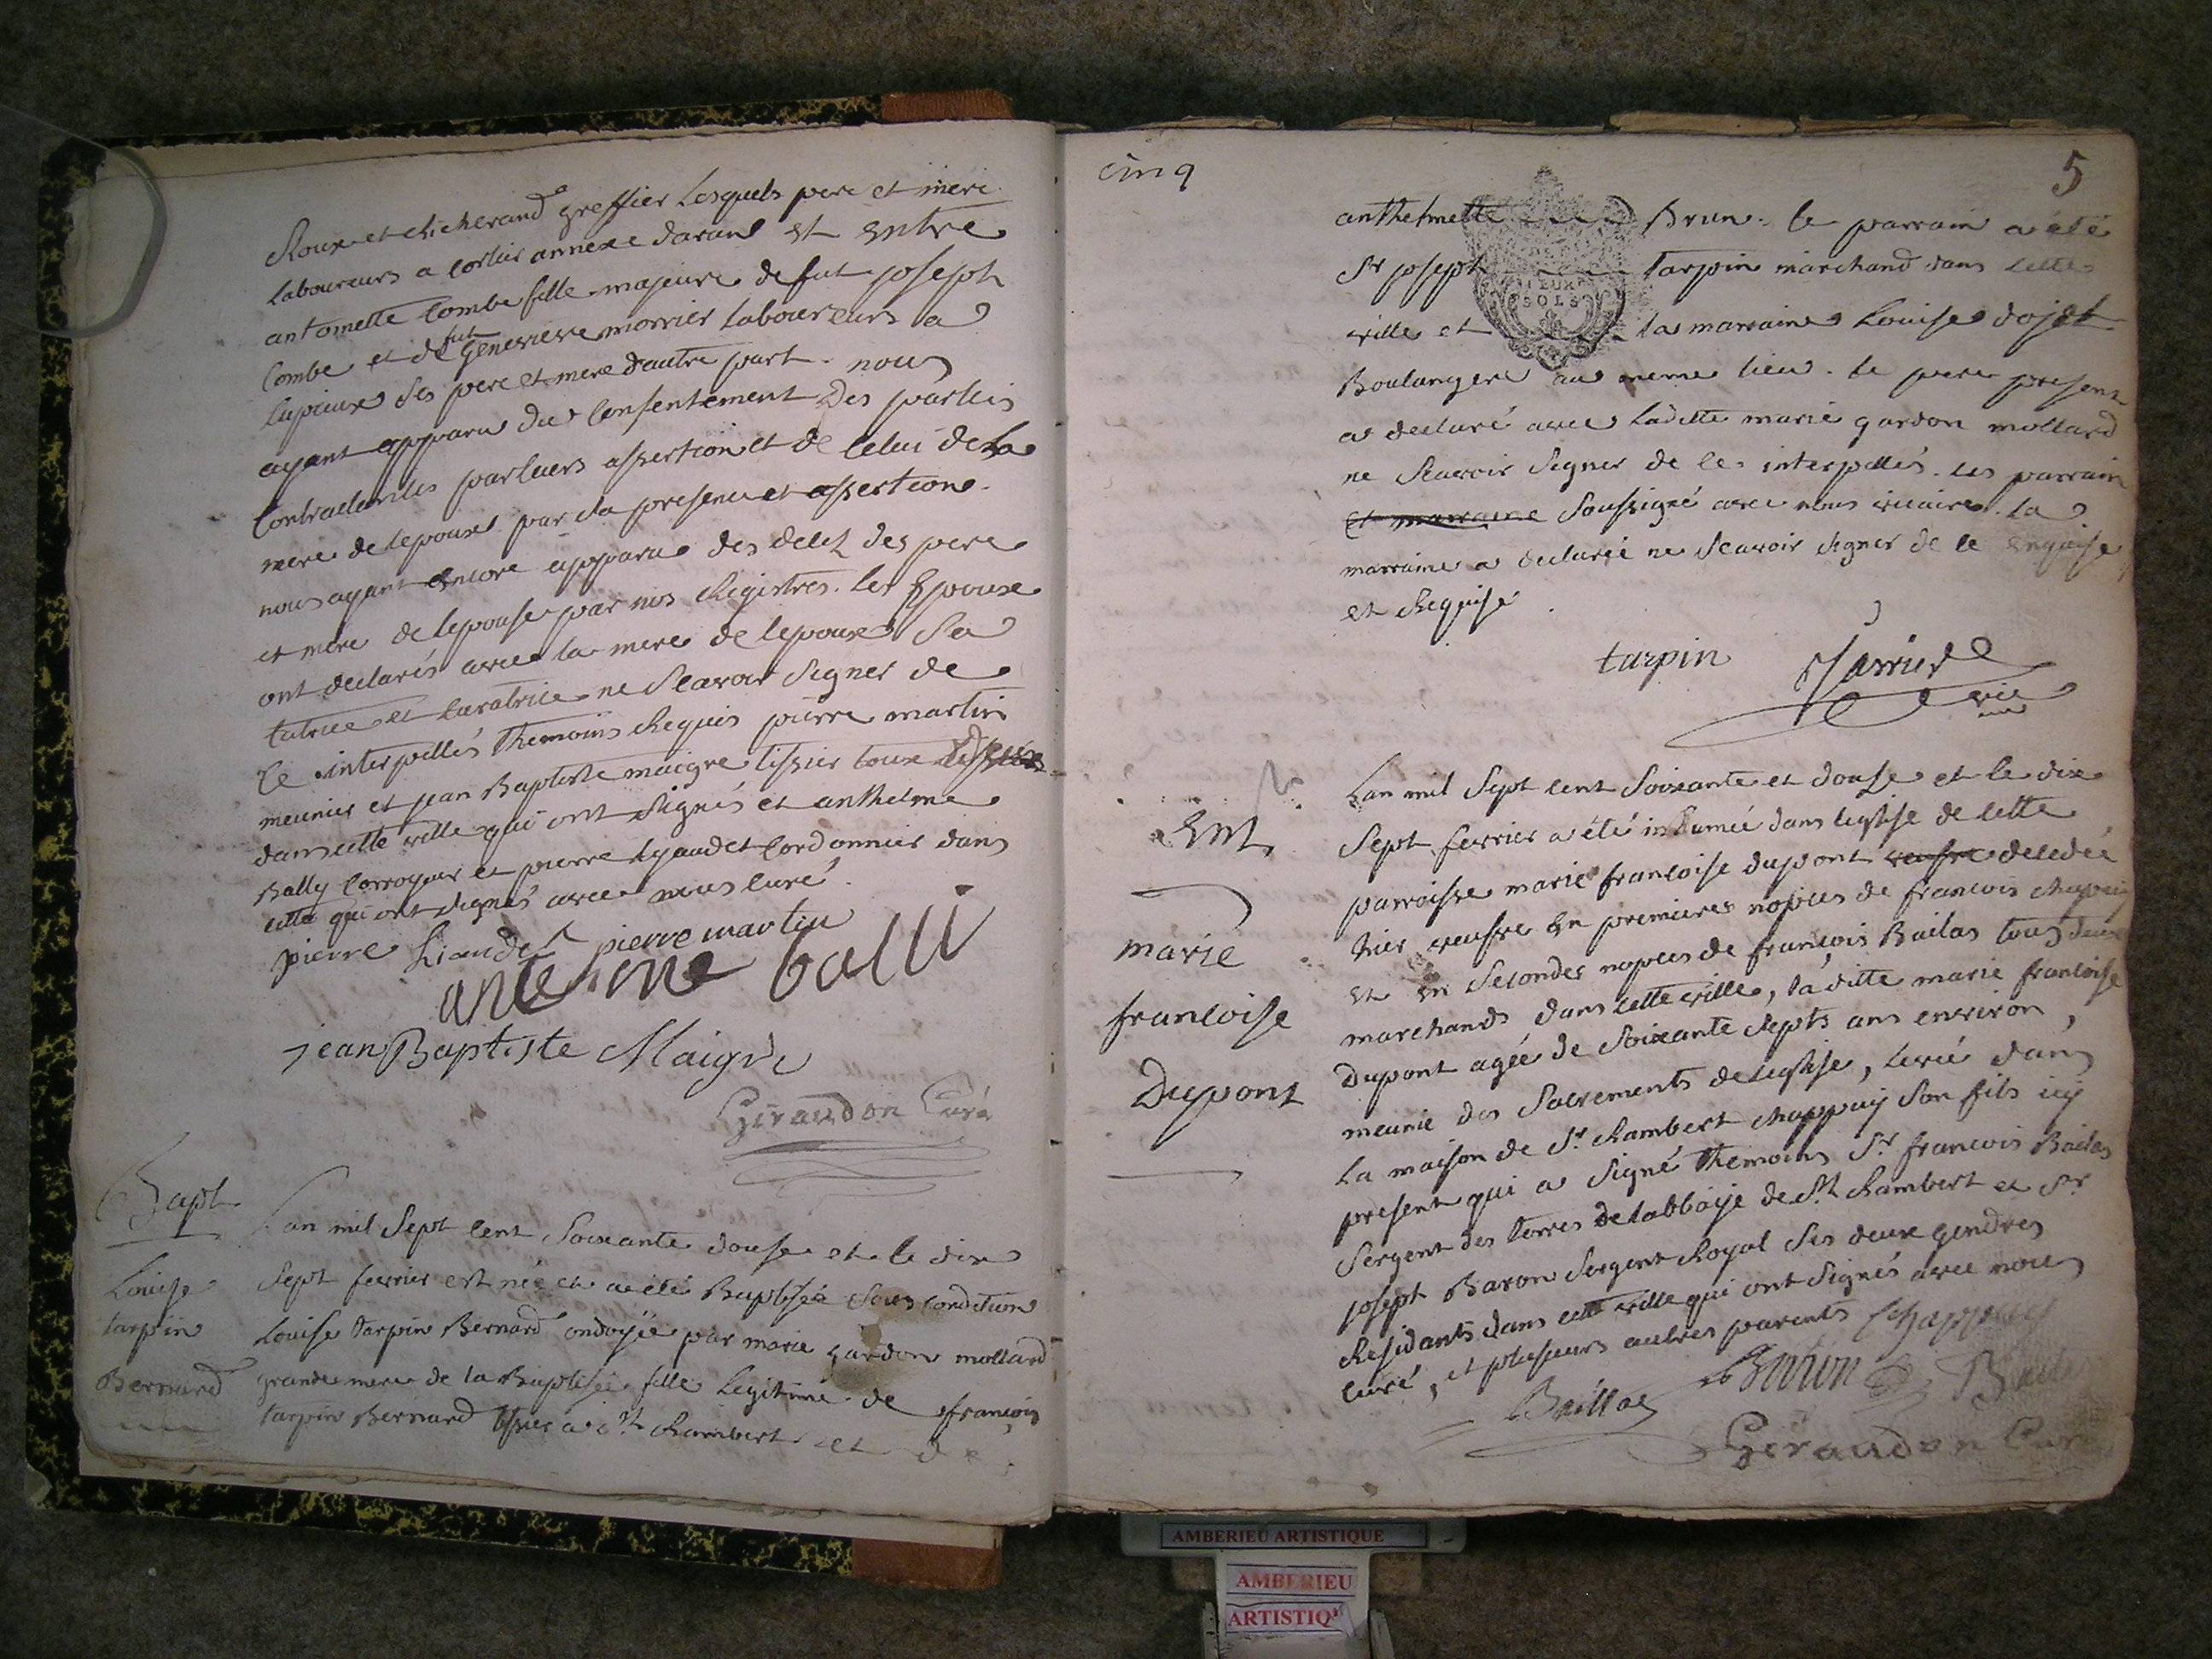 Roux et Richerand greffier lesquels pere et mere
laboureurs a corlier annexe daran et entre
antoinette Combe fille majeure de fut joseph
Combe et de fut Genevieve morrier laboureurs a
ses pere et mere d'autre part. nous
ayant apparu du consentement des parties
contractantes par leurs assertion et de celui de la
mere de lepoux par sa presence et assertion.
nous ayant encore apparu des deces des pere
et mere de lepouse par nos Registres. les Epoux
ont declarés avec la mere de lepoux sa
tutrice et curatrice ne scavoir signer de
ce interpellés themoins Requis pierre martin
meunier et jean Baptiste maigre tissier tous
dans cette ville qui ont signés et anthelme
Bally corroyeur et pierre Lyaudet cordonnier dans
cette qui ont signés avec nous curé.
pierre Liaudet pierre martin
antelme balli
jean Baptiste Maigre
Geraudon Curé
Bapt
Louise
tarpin
Bernard
Lan mil sept cent soixante douse et le dix
sept fevrier est née et a été Baptisée sous condition
Louise tarpin Bernard ondoyée par marie gardon mollard
grande mere de la Baptisée fille legitime de françois
tarpin Bernard tissier a st Rambert et de
cinq
5
anthelmette Brun. le parrain a été
Sr joseph tarpin marchand dans cette
DEUX
SOLS
ville et la marraine Louise dojat
Boulangere au meme lieu. le pere present
a declaré avec laditte marie gardon mollard
ne scavoir signer de ce interpellés. les parrain
et marraine soussigné avec nous vicaire. la
marraine a declarée ne scavoir signer de ce enquise
et Requise.
tarpin Jarrier
vic
Ent
marie
francoise
Dupont
Lan mil sept cent soixante et douse et le dix
sept fevrier a été inhumée dans leglise de cette
parroisse marie francoise dupont veufve decedée
hier veufve en premieres nopces de francois chapuy
et en secondes nopces de françois Bailas tous deux
marchands dans cette ville, laditte marie francoise
Dupont agée de soixante septs ans environ,
meunie des sacrements de leglise, levée dans
la maison de Sr Rambert chappuy son fils icy
present qui a signé themoins Sr francois Bailas
sergent des terres de labbaije de St Rambert et Sr
joseph Baron sergent Royal ses deux gendres
Residants dans cette ville qui ont signés avec nous
curé, et plusieurs autres parents Chappuy
Baillas Baron
Geraudon Curé
AMBERIEU ARTISTIQUE
AMBERIEU
ARTISTIQ